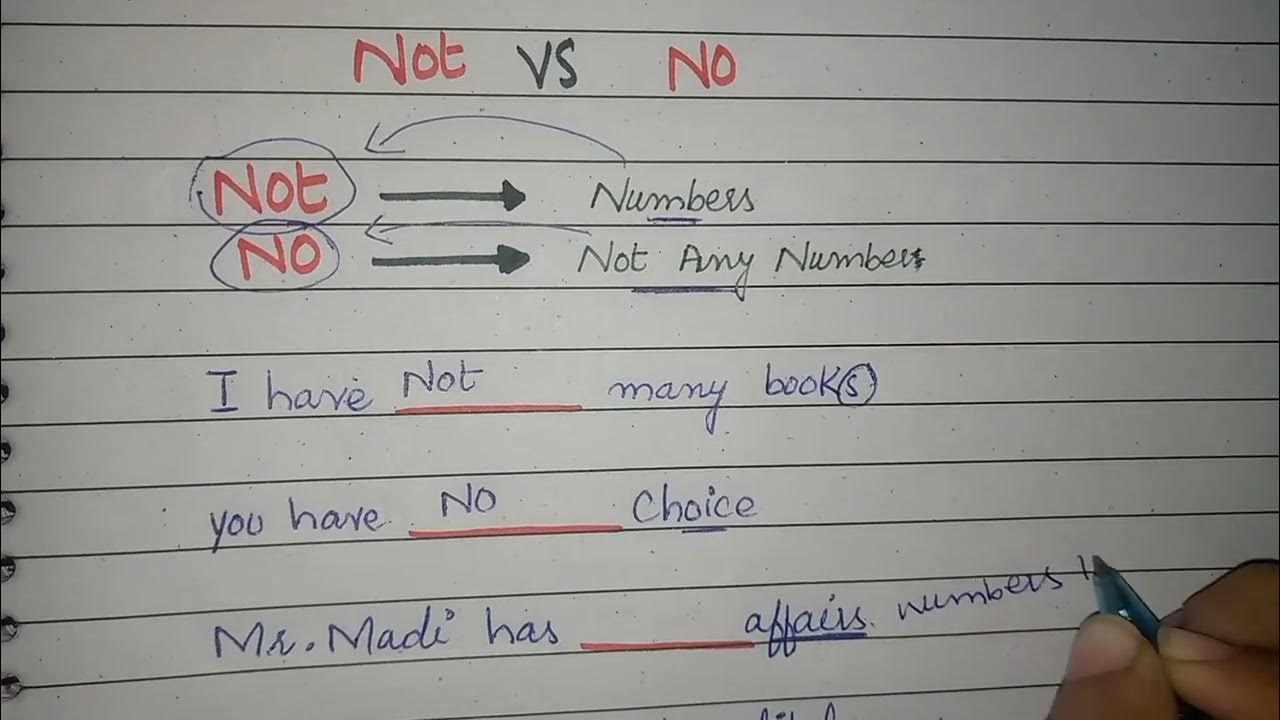 Not VS NO
Not → Numbers
NO → Not Any Numbers
I have Not many book(s)
you have NO Choice
Mr. Madi has affairs. numbers